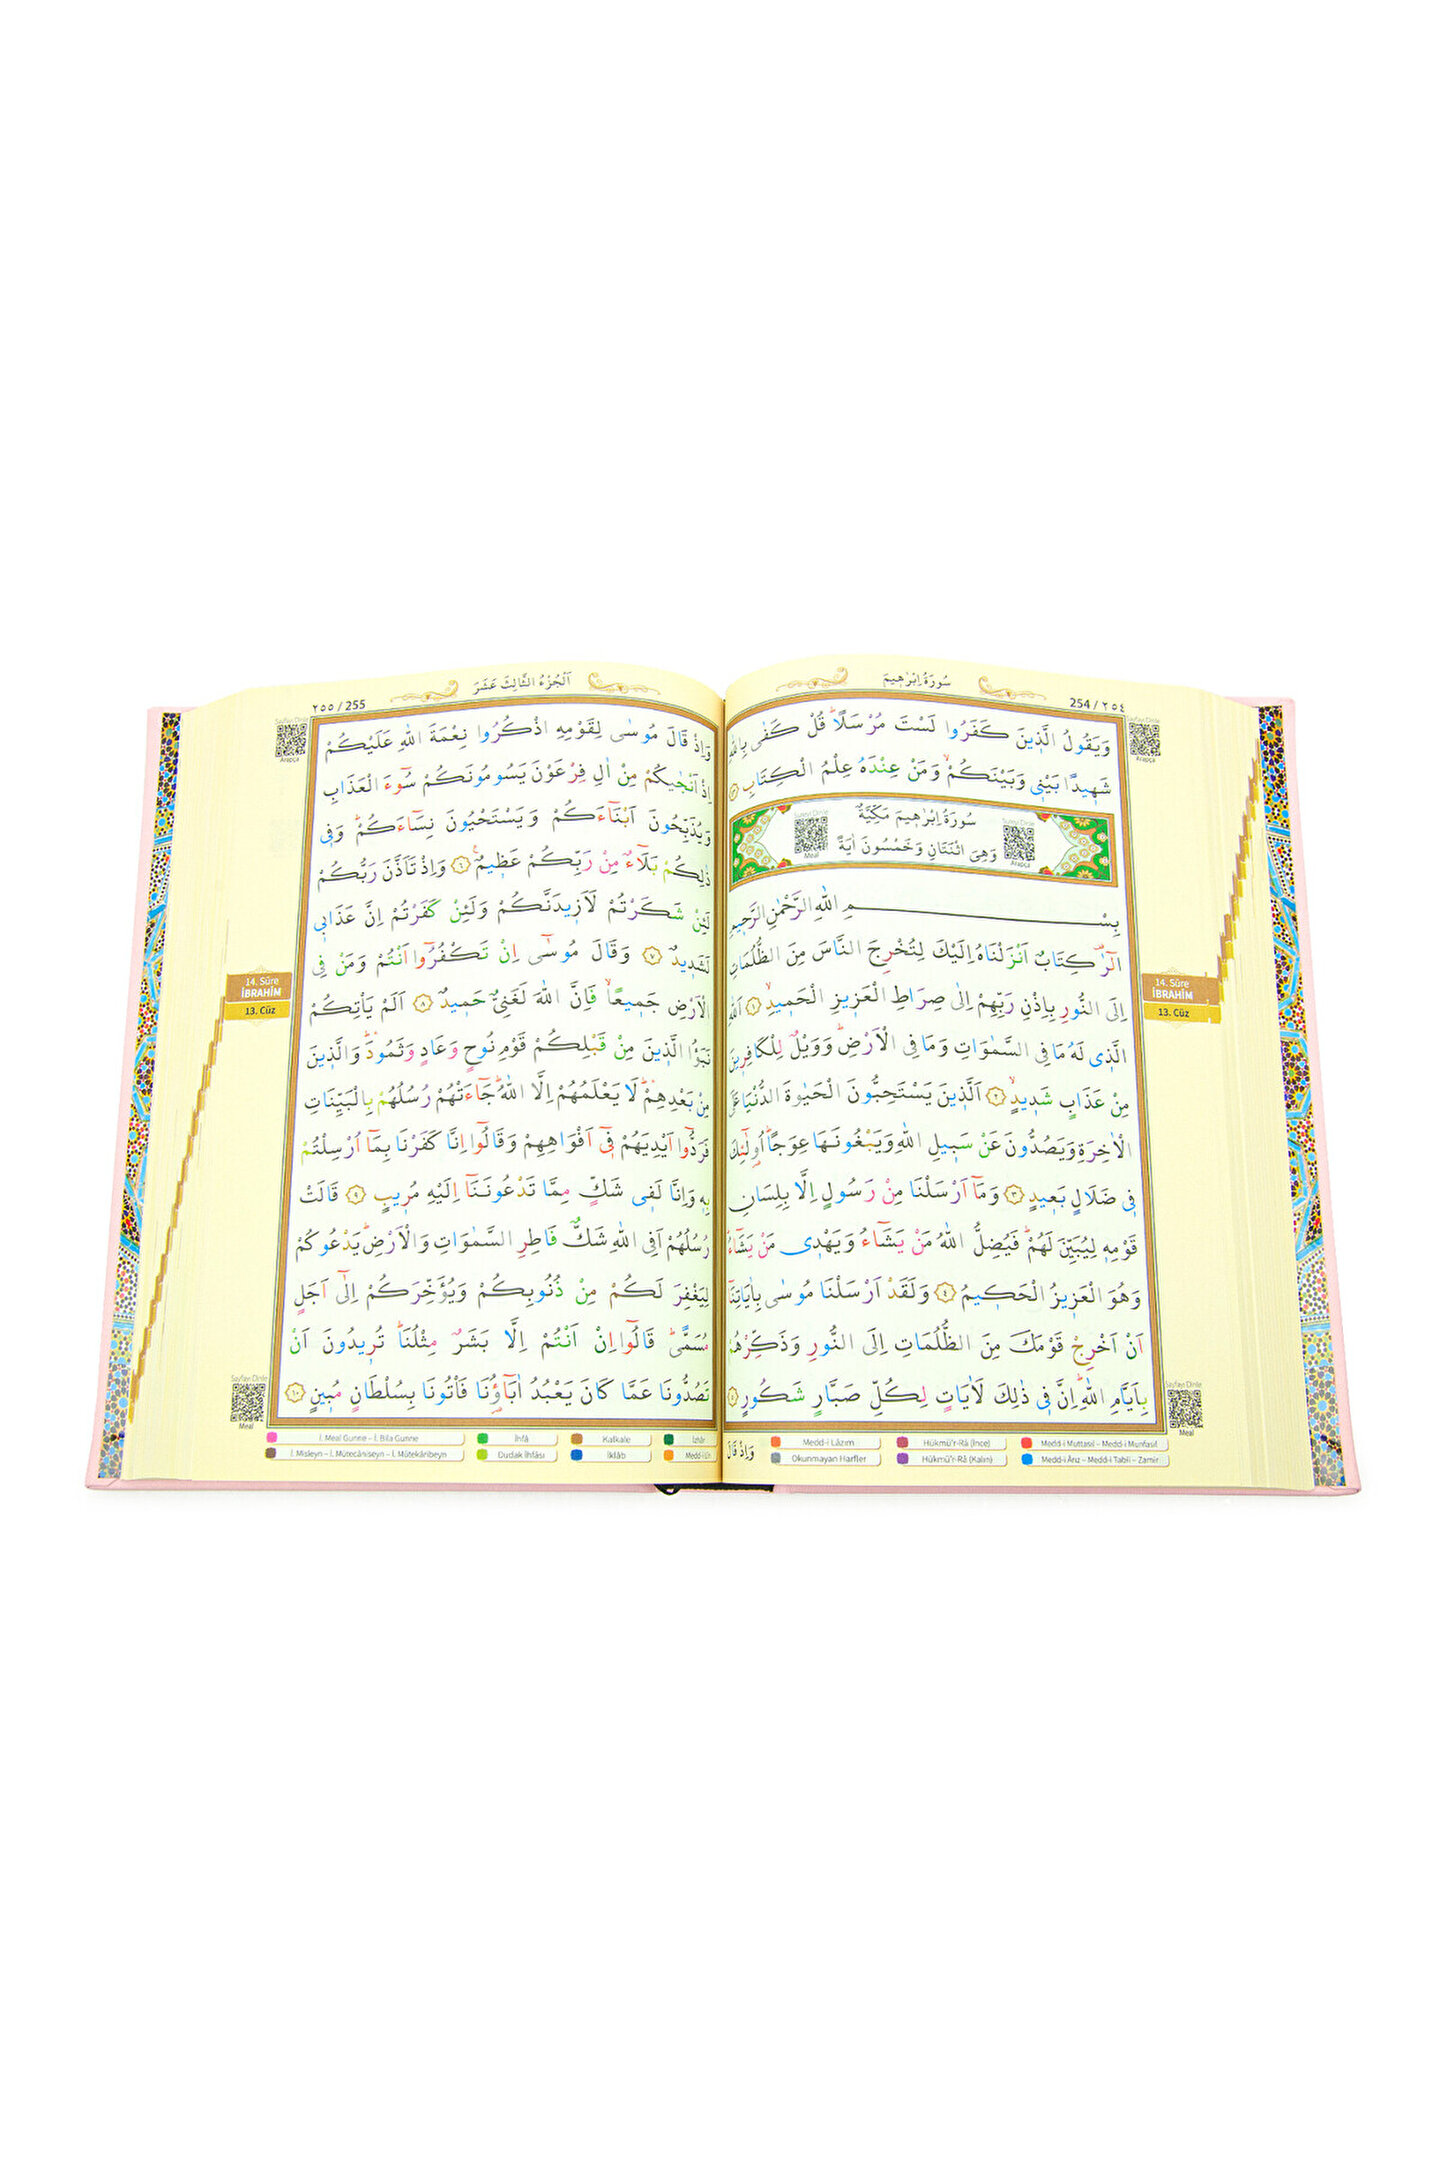 سُورَةُ اِبْرٰهٖيمَ
254 / ٢٥٤
وَيَقُولُ الَّذٖينَ كَفَرُوا لَسْتَ مُرْسَلًاؕ قُلْ كَفٰى بِاللّٰهِ
شَهٖيدًا بَيْنٖي وَبَيْنَكُمْۙ وَمَنْ عِنْدَهُ عِلْمُ الْكِتَابِ ﴿٤٣﴾
Sureyi Dinle
Meal
سُورَةُ اِبْرٰهٖيمَ مَكِّيَّةٌ
وَهِيَ اثْنَتَانِ وَخَمْسُونَ اٰيَةً
Sureyi Dinle
Arapça
بِسْمِ اللّٰهِ الرَّحْمٰنِ الرَّحٖيمِ
الٓرٰ۠ كِتَابٌ اَنْزَلْنَاهُ اِلَيْكَ لِتُخْرِجَ النَّاسَ مِنَ الظُّلُمَاتِ
اِلَى النُّورِ بِاِذْنِ رَبِّهِمْ اِلٰى صِرَاطِ الْعَزٖيزِ الْحَمٖيدِۙ ﴿١﴾ اَللّٰهِ
الَّذٖي لَهُ مَا فِي السَّمٰوَاتِ وَمَا فِي الْاَرْضِؕ وَوَيْلٌ لِلْكَافِرٖينَ
مِنْ عَذَابٍ شَدٖيدٍۙ ﴿٢﴾ اَلَّذٖينَ يَسْتَحِبُّونَ الْحَيٰوةَ الدُّنْيَا عَلَى
الْاٰخِرَةِ وَيَصُدُّونَ عَنْ سَبٖيلِ اللّٰهِ وَيَبْغُونَهَا عِوَجًاؕ اُو۬لٰٓئِكَ
فٖي ضَلَالٍ بَعٖيدٍ ﴿٣﴾ وَمَٓا اَرْسَلْنَا مِنْ رَسُولٍ اِلَّا بِلِسَانِ
قَوْمِهٖ لِيُبَيِّنَ لَهُمْؕ فَيُضِلُّ اللّٰهُ مَنْ يَشَٓاءُ وَيَهْدٖي مَنْ يَشَٓاءُؕ
وَهُوَ الْعَزٖيزُ الْحَكٖيمُ ﴿٤﴾ وَلَقَدْ اَرْسَلْنَا مُوسٰى بِاٰيَاتِنَٓا
اَنْ اَخْرِجْ قَوْمَكَ مِنَ الظُّلُمَاتِ اِلَى النُّورِ وَذَكِّرْهُمْ
بِاَيَّامِ اللّٰهِؕ اِنَّ فٖي ذٰلِكَ لَاٰيَاتٍ لِكُلِّ صَبَّارٍ شَكُورٍ
وَاِذْ قَالَ
Medd-i Lâzım
Hükmü'r-Râ (İnce)
Medd-i Muttasıl – Medd-i Munfasıl
Okunmayan Harfler
Hükmü'r-Râ (Kalın)
Medd-i Ârız – Medd-i Tabîî – Zamir
Sayfayı Dinle
Arapça
14. Sûre
İBRAHİM
13. Cüz
Sayfayı Dinle
Meal
اَلْجُزْءُ الثَّالِثَ عَشَرَ
٢٥٥ / 255
وَاِذْ قَالَ مُوسٰى لِقَوْمِهِ اذْكُرُوا نِعْمَةَ اللّٰهِ عَلَيْكُمْ
اِذْ اَنْجٰيكُمْ مِنْ اٰلِ فِرْعَوْنَ يَسُومُونَكُمْ سُٓوءَ الْعَذَابِ
وَيُذَبِّحُونَ اَبْنَٓاءَكُمْ وَيَسْتَحْيُونَ نِسَٓاءَكُمْؕ وَفٖي
ذٰلِكُمْ بَلَٓاءٌ مِنْ رَبِّكُمْ عَظٖيمٌ۟ ﴿٦﴾ وَاِذْ تَاَذَّنَ رَبُّكُمْ
لَئِنْ شَكَرْتُمْ لَاَزٖيدَنَّكُمْ وَلَئِنْ كَفَرْتُمْ اِنَّ عَذَابٖي
لَشَدٖيدٌ ﴿٧﴾ وَقَالَ مُوسٰٓى اِنْ تَكْفُرُٓوا اَنْتُمْ وَمَنْ فِي
الْاَرْضِ جَمٖيعًاۙ فَاِنَّ اللّٰهَ لَغَنِيٌّ حَمٖيدٌ ﴿٨﴾ اَلَمْ يَاْتِكُمْ
نَبَؤُا الَّذٖينَ مِنْ قَبْلِكُمْ قَوْمِ نُوحٍ وَعَادٍ وَثَمُودَۛ وَالَّذٖينَ
مِنْ بَعْدِهِمْۛ لَا يَعْلَمُهُمْ اِلَّا اللّٰهُؕ جَٓاءَتْهُمْ رُسُلُهُمْ بِالْبَيِّنَاتِ
فَرَدُّٓوا اَيْدِيَهُمْ فٖٓي اَفْوَاهِهِمْ وَقَالُٓوا اِنَّا كَفَرْنَا بِمَٓا اُرْسِلْتُمْ
بِهٖ وَاِنَّا لَفٖي شَكٍّ مِمَّا تَدْعُونَنَٓا اِلَيْهِ مُرٖيبٍ ﴿٩﴾ قَالَتْ
رُسُلُهُمْ اَفِي اللّٰهِ شَكٌّ فَاطِرِ السَّمٰوَاتِ وَالْاَرْضِؕ يَدْعُوكُمْ
لِيَغْفِرَ لَكُمْ مِنْ ذُنُوبِكُمْ وَيُؤَخِّرَكُمْ اِلٰٓى اَجَلٍ
مُسَمًّىؕ قَالُٓوا اِنْ اَنْتُمْ اِلَّا بَشَرٌ مِثْلُنَاؕ تُرٖيدُونَ اَنْ
تَصُدُّونَا عَمَّا كَانَ يَعْبُدُ اٰبَٓاؤُ۬نَا فَاْتُونَا بِسُلْطَانٍ مُبٖينٍ ﴿١٠﴾
İ. Meal Gunne – İ. Bila Gunne
İhfâ
Kalkale
İzhâr
İ. Misleyn – İ. Mütecâniseyn – İ. Mütekâribeyn
Dudak İhfâsı
İklâb
Medd-i Lîn
Sayfayı Dinle
Arapça
14. Sûre
İBRAHİM
13. Cüz
Sayfayı Dinle
Meal